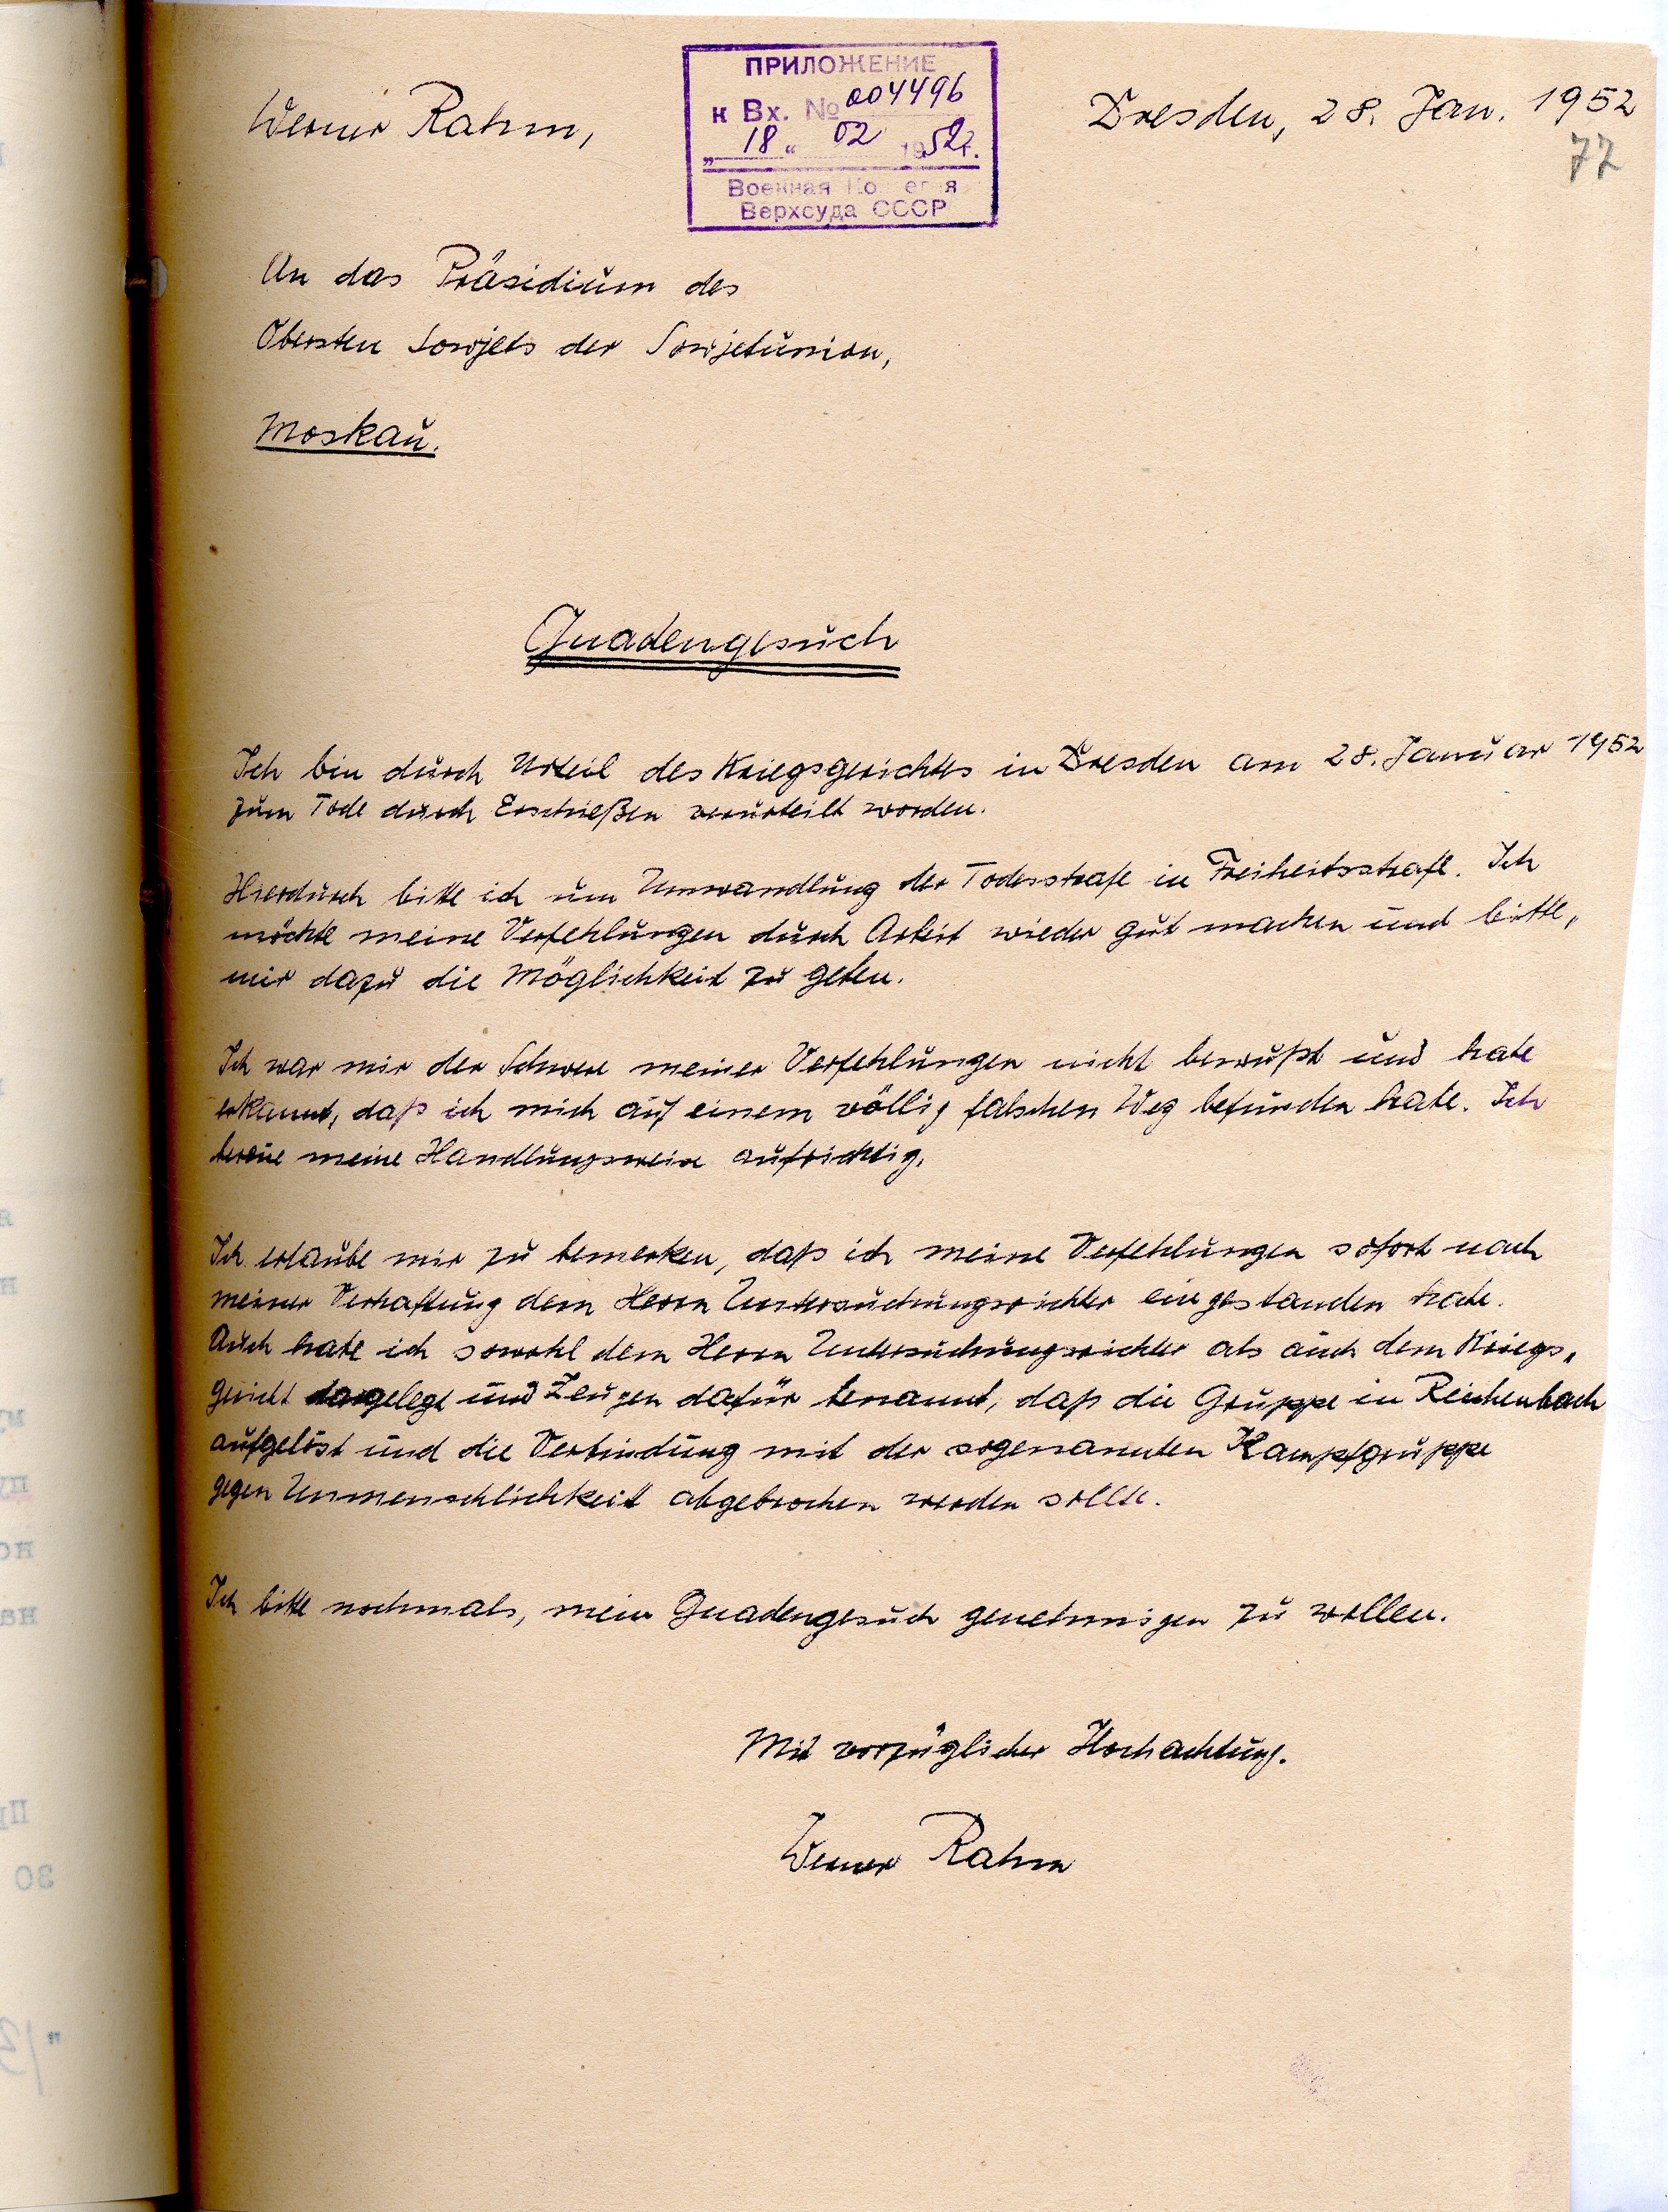 ПРИЛОЖЕНИЕ
к Вх. № 004496
„18“ 02 1952г.
Военная Коллегия
Верхсуда СССР
Werner Rahm,
Dresden, 28. Jan. 1952
77
An das Präsidium des
Obersten Sowjets der Sowjetunion,
Moskau.
Gnadengesuch
Ich bin durch Urteil des Kriegsgerichtes in Dresden am 28. Januar 1952
zum Tode durch Erschießen verurteilt worden.
Hierdurch bitte ich um Umwandlung der Todesstrafe in Freiheitsstrafe. Ich
möchte meine Verfehlungen durch Arbeit wieder gut machen und bitte,
mir dazu die Möglichkeit zu geben.
Ich war mir der Schwere meiner Verfehlungen nicht bewußt und habe
erkannt, daß ich mich auf einem völlig falschen Weg befunden habe. Ich
bereue meine Handlungsweise aufrichtig.
Ich erlaube mir zu bemerken, daß ich meine Verfehlungen sofort nach
meiner Verhaftung dem Herrn Untersuchungsrichter eingestanden habe.
Auch habe ich sowohl dem Herrn Untersuchungsrichter als auch dem Kriegs-
gericht dargelegt und Zeugen dafür benannt, daß die Gruppe in Reichenbach
aufgelöst und die Verbindung mit der sogenannten Kampfgruppe
gegen Unmenschlichkeit abgebrochen werden sollte.
Ich bitte nochmals, mein Gnadengesuch genehmigen zu wollen.
Mit vorzüglicher Hochachtung.
Werner Rahm